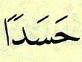 حَسَدًا